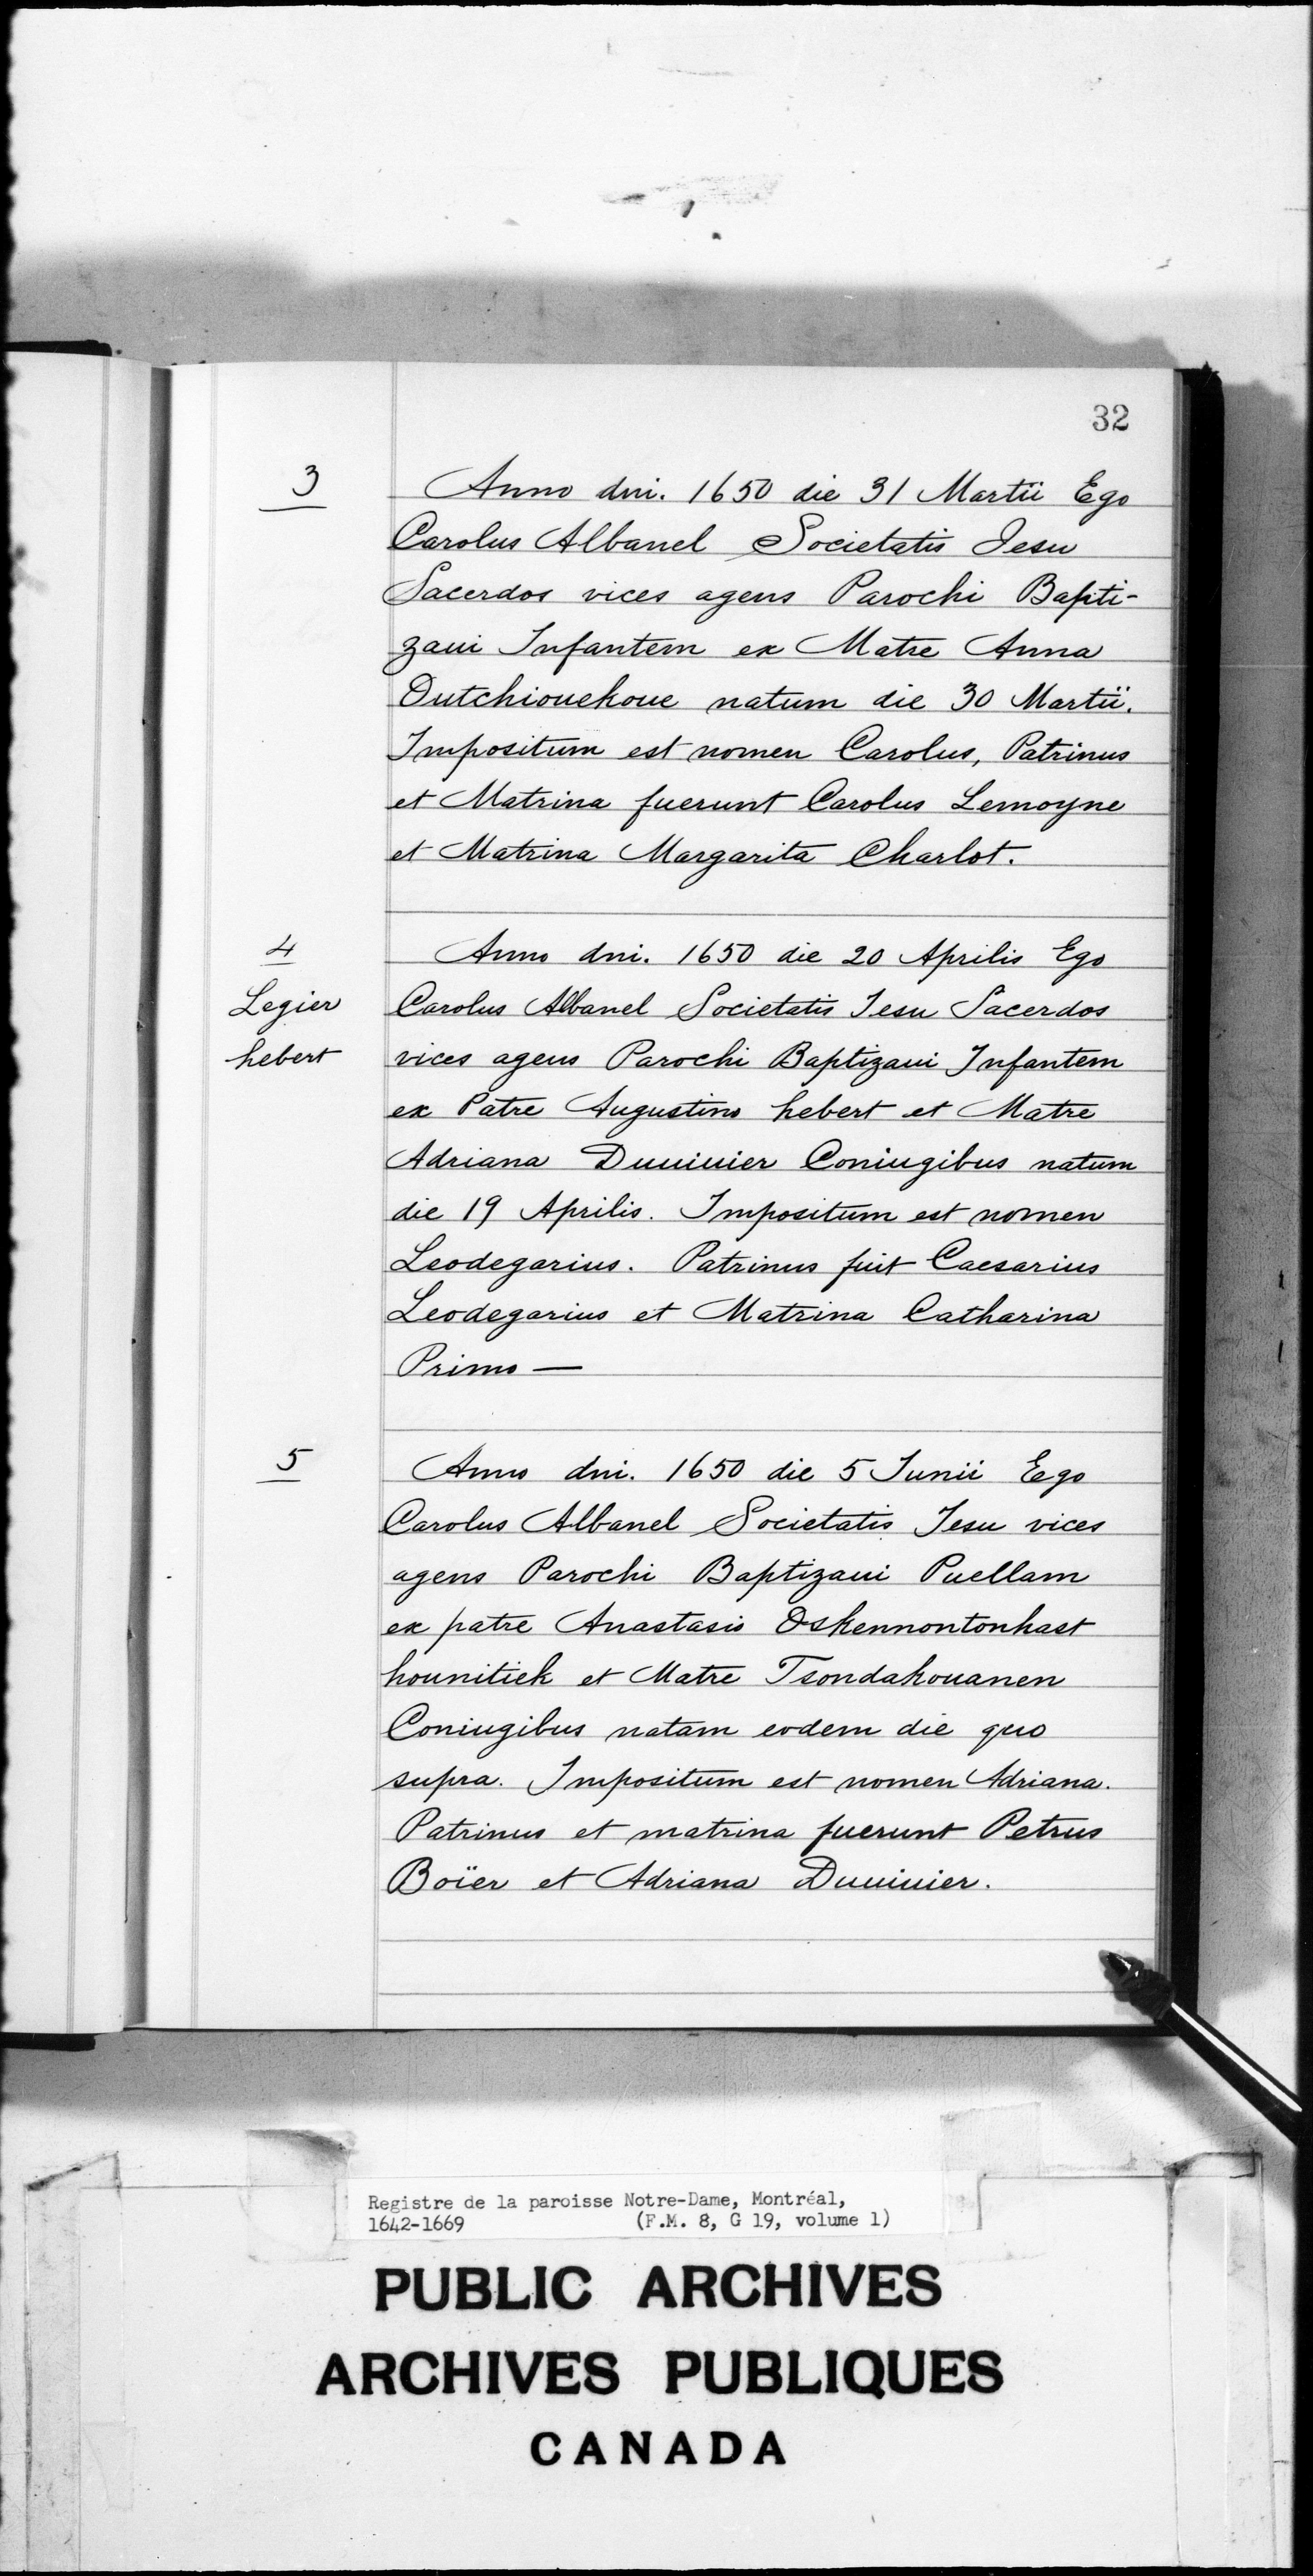 32
3
Anno dni. 1650 die 31 Martii Ego
Carolus Albanel Societatis Jesu
Sacerdos vices agens Parochi Bapti-
zaui Infantem ex Matre Anna
Outchiouekoue natum die 30 Martii.
Impositum est nomen Carolus, Patrinus
et Matrina fuerunt Carolus Lemoyne
et Matrina Margarita Charlot.
4
Legier
hebert
Anno dni. 1650 die 20 Aprilis Ego
Carolus Albanel Societatis Iesu Sacerdos
vices agens Parochi Baptizaui Infantem
ex Patre Augustino hebert et Matre
Adriana Duuiuier Coniugibus natum
die 19 Aprilis. Impositum est nomen
Leodegarius. Patrinus fuit Caesarius
Leodegarius et Matrina Catharina
Primo —
5
Anno dni. 1650 die 5 Iunii Ego
Carolus Albanel Societatis Iesu vices
agens Parochi Baptizaui Puellam
ex patre Anastasio Oskennontonhast
hounitiek et Matre Tsondahouanen
Coniugibus natam eodem die quo
supra. Impositum est nomen Adriana.
Patrinus et matrina fuerunt Petrus
Boïer et Adriana Duuiuier.
Registre de la paroisse Notre-Dame, Montréal,
1642-1669 (F.M. 8, G 19, volume 1)
PUBLIC ARCHIVES
ARCHIVES PUBLIQUES
CANADA